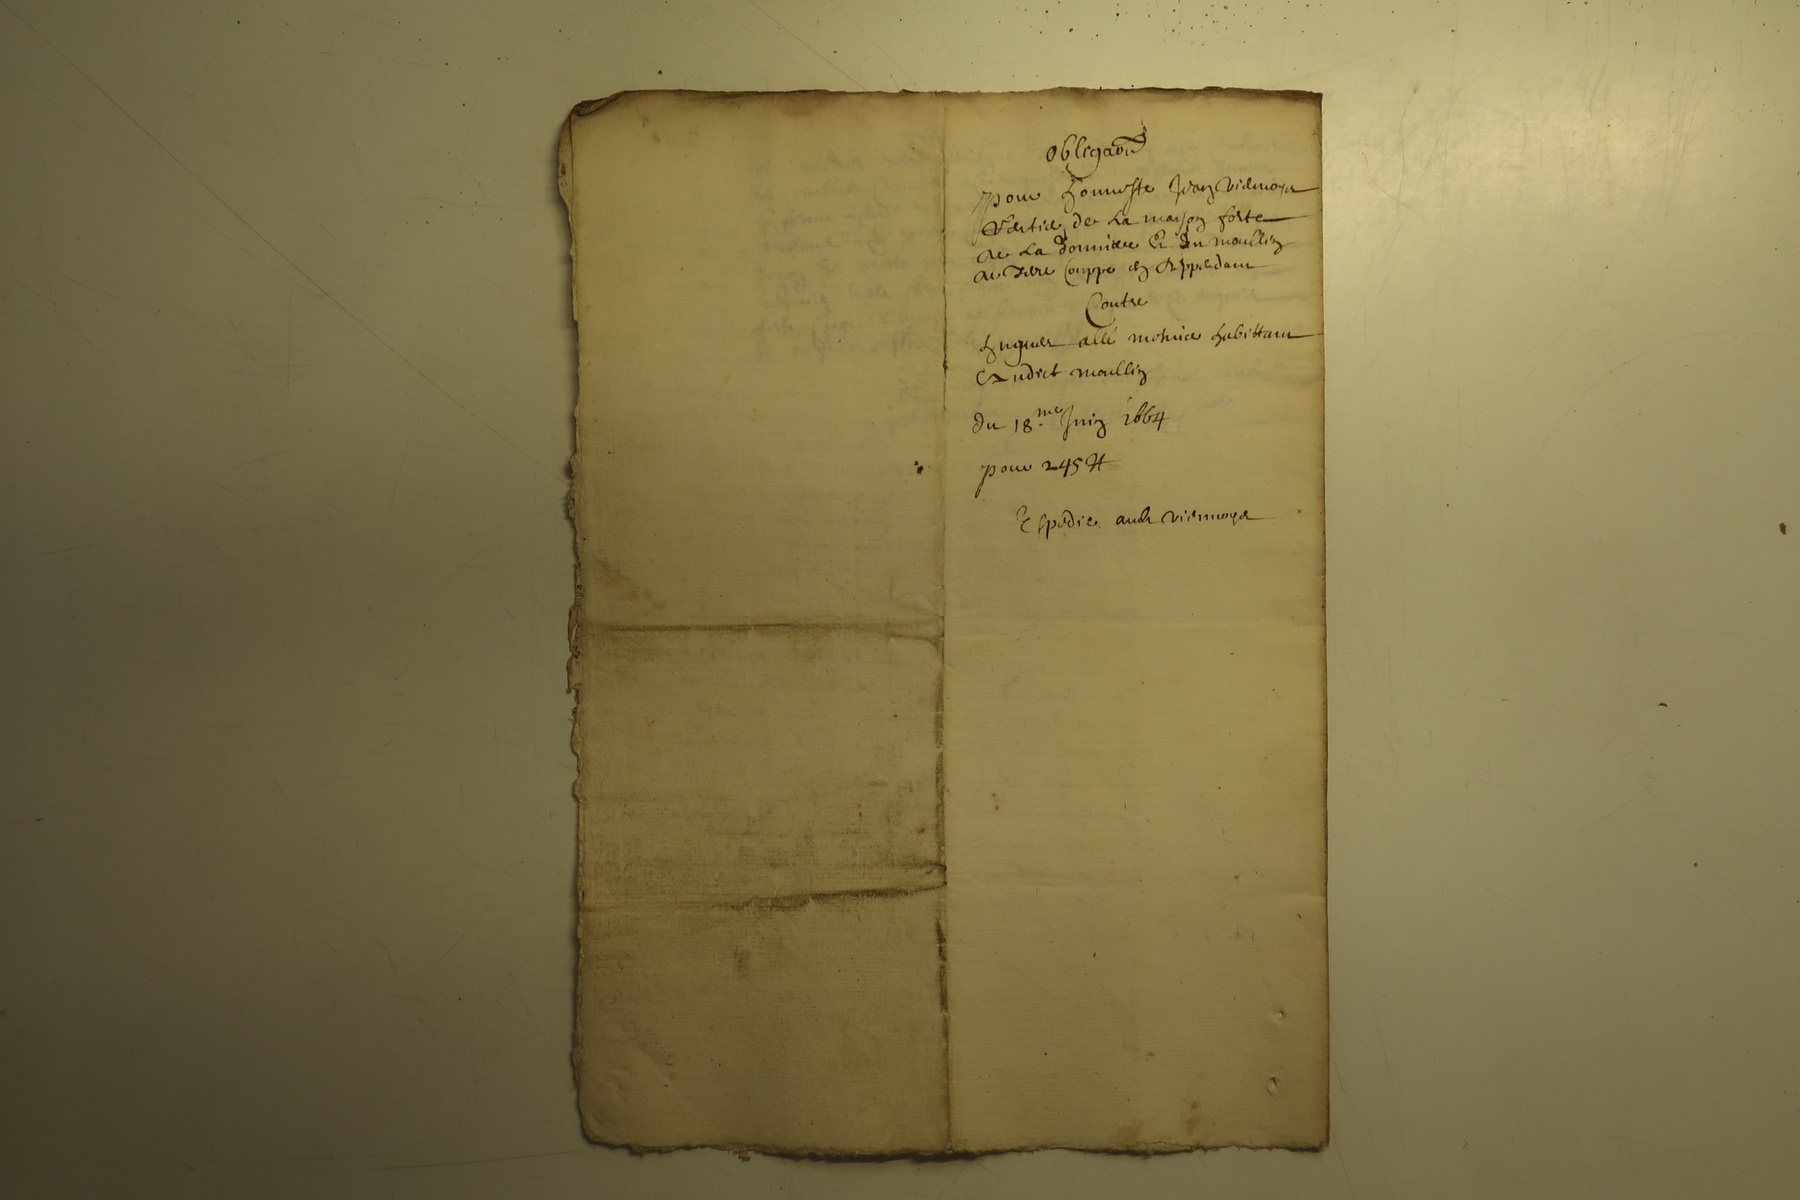 Oblegaōn
pour honneste Jean Vidmoyer
de La maison forte
de La Donniere Et Du moullin
de couppe en deppendant
Contre
hugues allé mohnier habittant
audict moullin
du 18.me Juin 1664
pour 245 tt
Espedie audt Vidmoyer